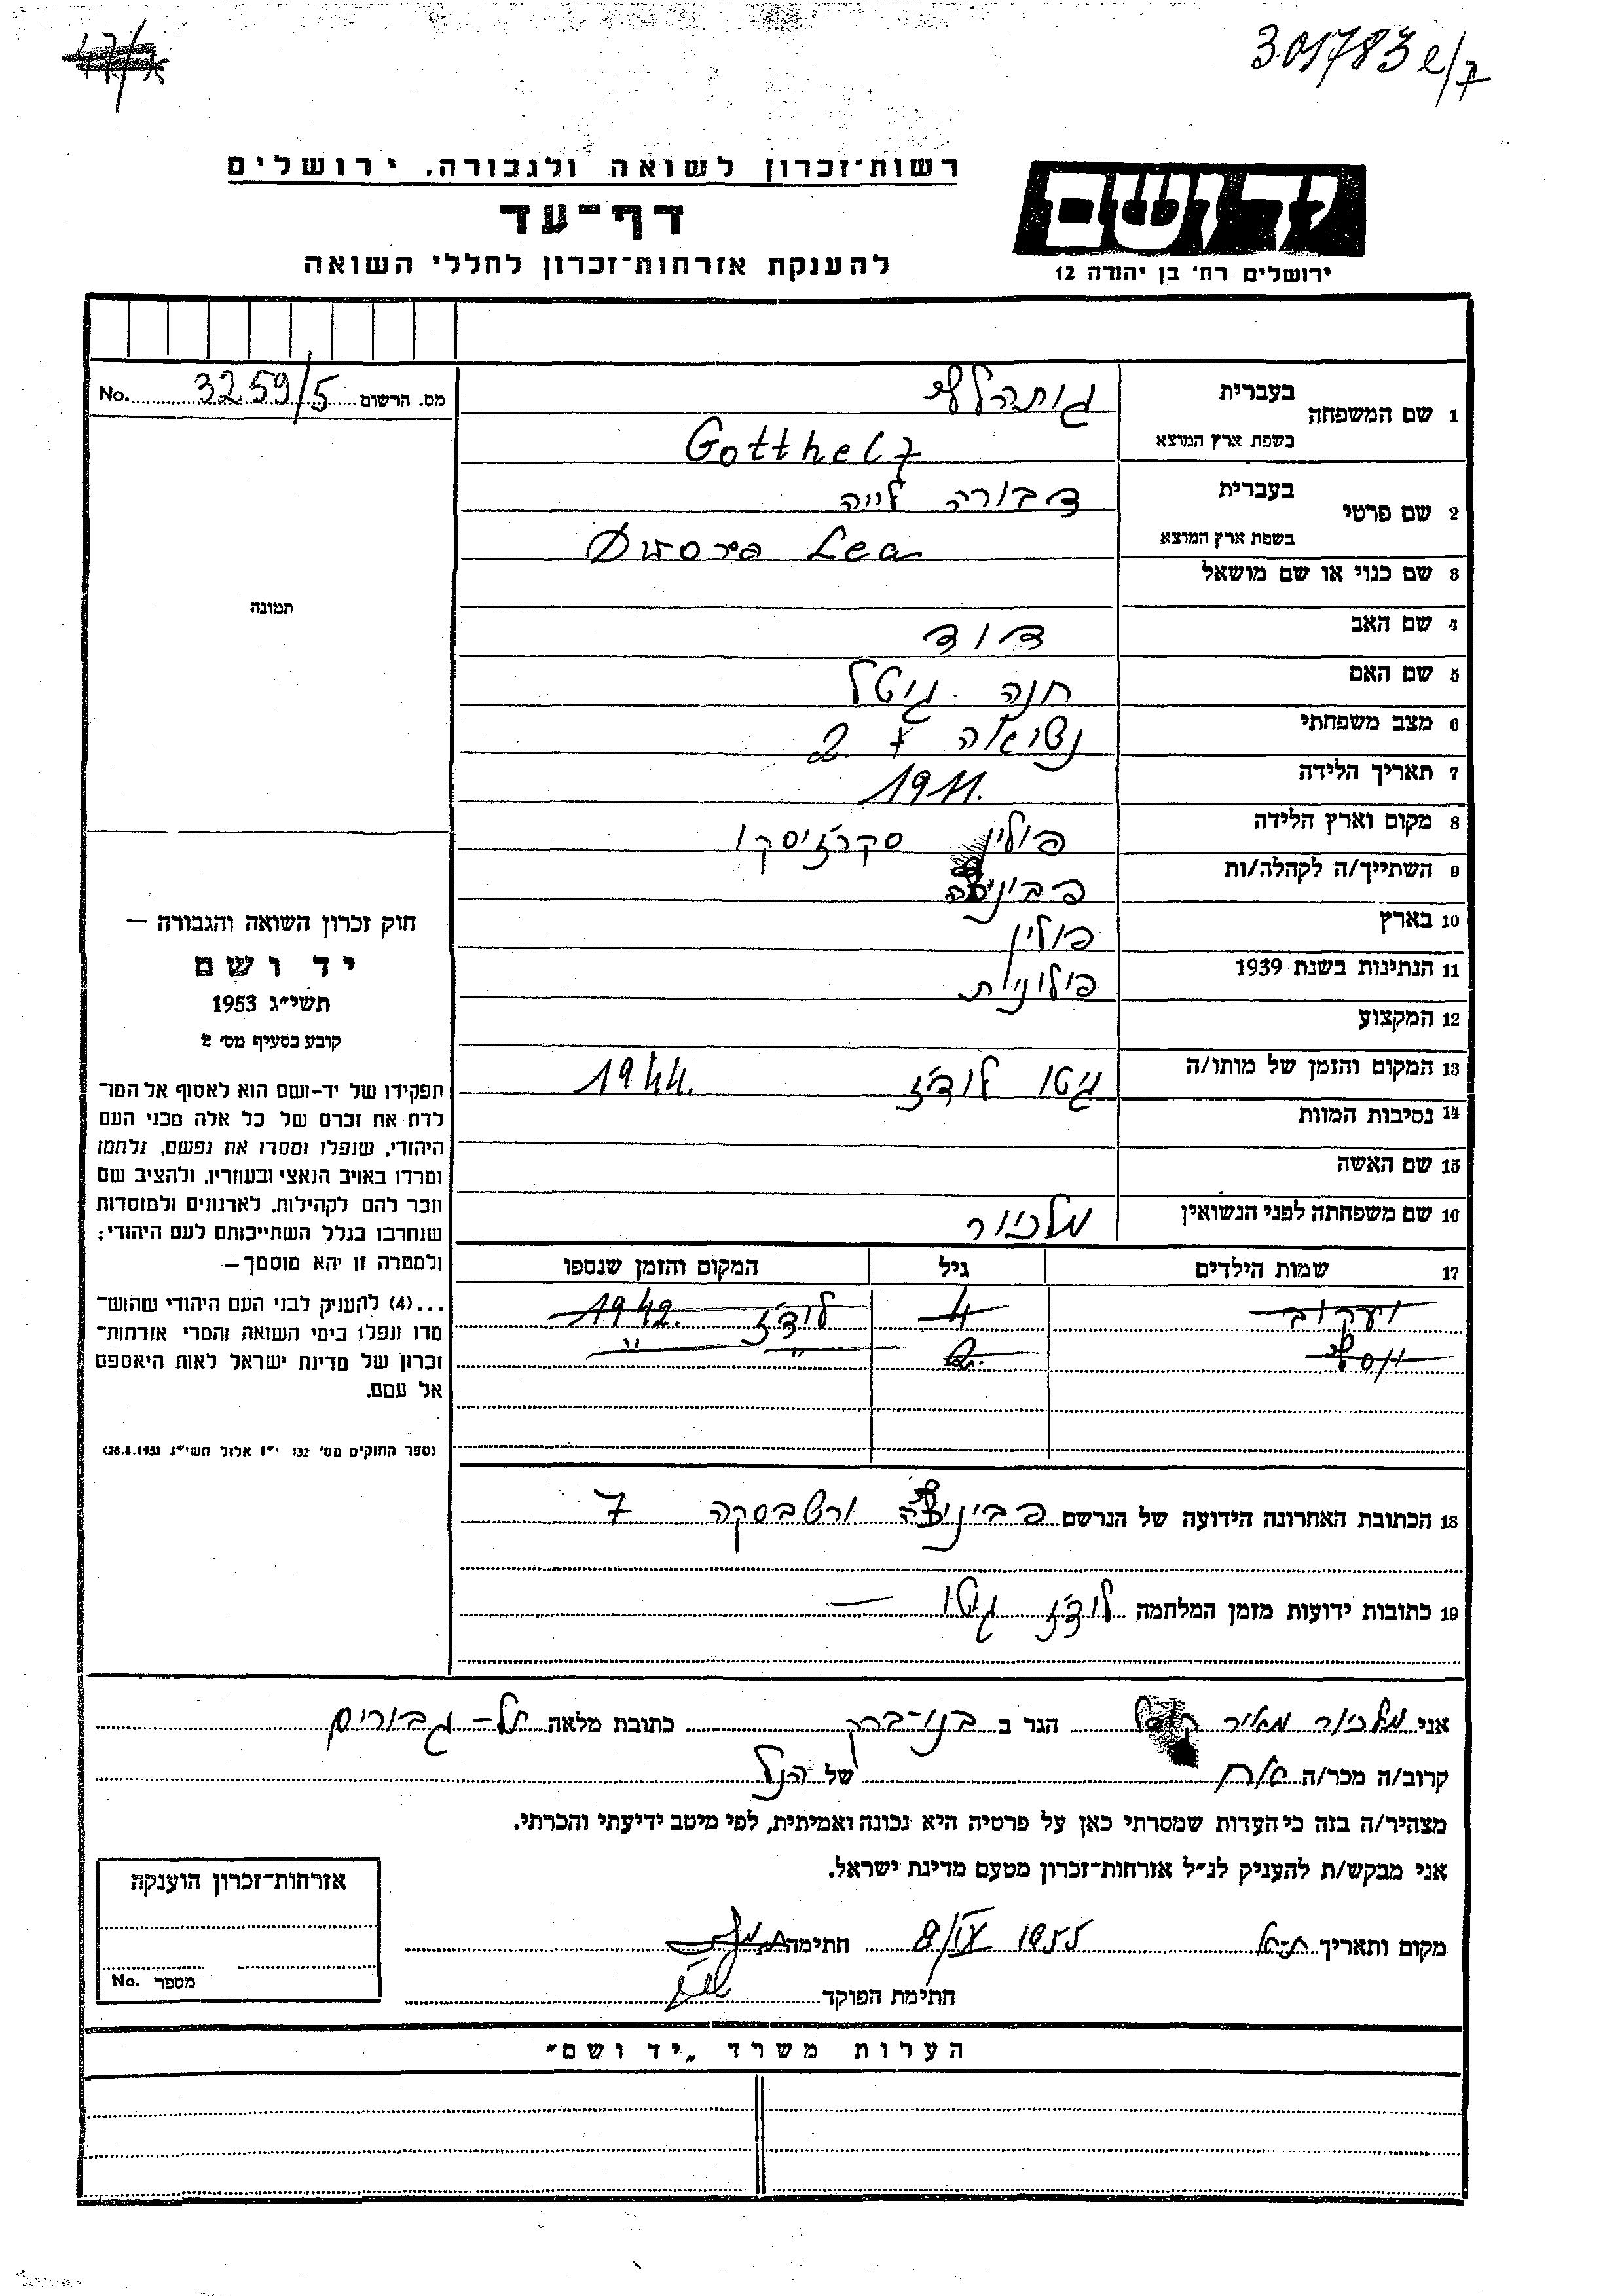 301783 e/7
רשות־זכרון לשואה ולגבורה, ירושלים
דף־עד
להענקת אזרחות־זכרון לחללי השואה
יד ושם
ירושלים רח' בן יהודה 12
מס. הרשום 3259/5 No.
1 שם המשפחה
בעברית גותהלף
בשפת ארץ המוצא Gotthelf
2 שם פרטי
בעברית דבורה לייה
בשפת ארץ המוצא Dwora Lea
3 שם כנוי או שם מושאל
4 שם האב דוד
5 שם האם חנה גיטל
6 מצב משפחתי נשואה + 2
7 תאריך הלידה 1911.
8 מקום וארץ הלידה פולין
9 השתייך/ה לקהלה/ות
10 בארץ פולין
11 הנתינות בשנת 1939 פולונית
12 המקצוע
13 המקום והזמן של מותו/ה גיטו לודז 1944.
14 נסיבות המוות
15 שם האשה
16 שם משפחתה לפני הנשואין מלכיור
17 שמות הילדים גיל המקום והזמן שנספו
יעקוב 4 לודז 1942.
יוסף 2. " "
18 הכתובת האחרונה הידועה של הנרשם 7
19 כתובות ידועות מזמן המלחמה לודז גטו —
תמונה
חוק זכרון השואה והגבורה —
יד ושם
תשי״ג 1953
קובע בסעיף מס' 2
תפקידו של יד-ושם הוא לאסוף אל המו־
לדת את זכרם של כל אלה מבני העם
היהודי, שנפלו ומסרו את נפשם, נלחמו
ומרדו באויב הנאצי ובעוזריו, ולהציב שם
וזכר להם לקהילות, לארגונים ולמוסדות
שנחרבו בגלל השתייכותם לעם היהודי;
ולמטרה זו יהא מוסמך –
...(4) להעניק לבני העם היהודי שהוש־
מדו ונפלו בימי השואה והמרי אזרחות־
זכרון של מדינת ישראל לאות היאספם
אל עמם.
(ספר החוקים מס' 132 י״ז אלול תשי״ג 28.8.1953)
אני מלכיור מאיר הגר ב בני-ברק כתובת מלאה תל- גבורים
קרוב/ה מכר/ה אח של הנל
מצהיר/ה בזה כי העדות שמסרתי כאן על פרטיה היא נכונה ואמיתית, לפי מיטב ידיעתי והכרתי.
אני מבקש/ת להעניק לנ״ל אזרחות־זכרון מטעם מדינת ישראל.
מקום ותאריך 8/IX 1955 חתימה
חתימת הפוקד
אזרחות־זכרון הוענקה
מספר No.
הערות משרד „יד ושם״